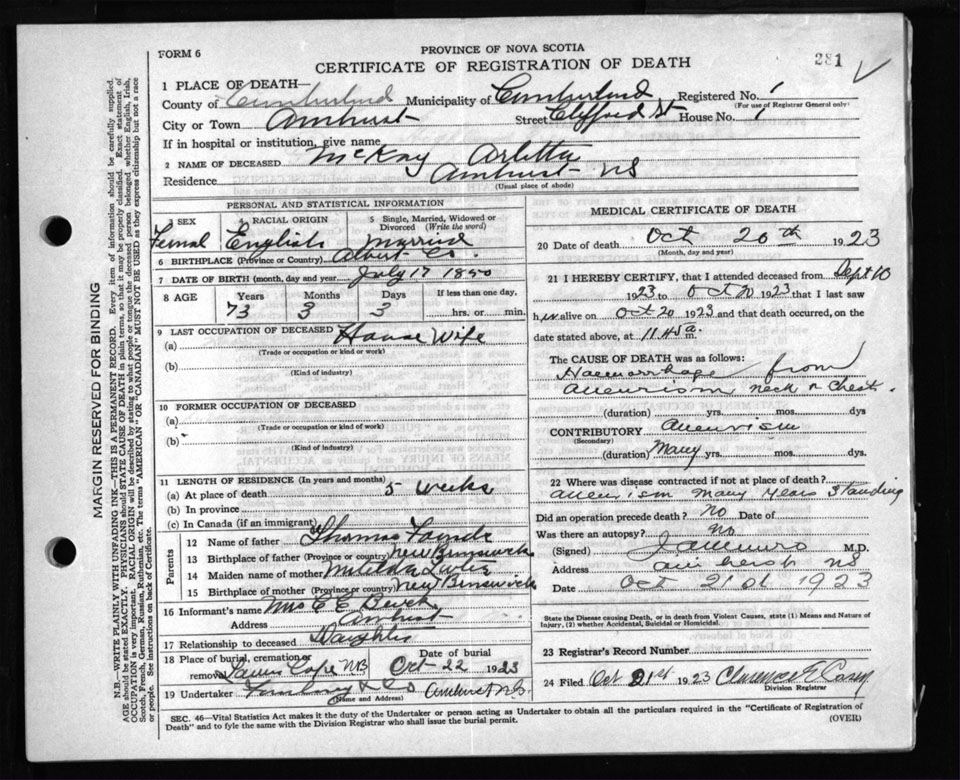 FORM 6
PROVINCE OF NOVA SCOTIA
281
CERTIFICATE OF REGISTRATION OF DEATH
1 PLACE OF DEATH—
County of Cumberland Municipality of Cumberland Registered No. 1
(For use of Registrar General only)
City or Town Amherst Street Clifford St House No. 1
If in hospital or institution, give name
2 NAME OF DECEASED McKay Arletta
Residence Amherst NS
(Usual place of abode)
PERSONAL AND STATISTICAL INFORMATION
3 SEX 4 RACIAL ORIGIN 5 Single, Married, Widowed or Divorced (Write the word)
Femal English Married
6 BIRTHPLACE (Province or Country) Albert Co.
7 DATE OF BIRTH (month, day and year) July 17 1850
8 AGE Years Months Days If less than one day,
73 3 3 hrs. or min.
9 LAST OCCUPATION OF DECEASED
(a) House Wife
(Trade or occupation or kind or work)
(b)
(Kind of industry)
10 FORMER OCCUPATION OF DECEASED
(a)
(Trade or occupation or kind of work)
(b)
(Kind of industry)
11 LENGTH OF RESIDENCE (In years and months)
(a) At place of death 5 weeks
(b) In province
(c) In Canada (if an immigrant)
Parents
12 Name of father Thomas
13 Birthplace of father (Province or country) New Brunswick
14 Maiden name of mother Matilda
15 Birthplace of mother (Province or country) New Brunswick
16 Informant's name Mrs E E
Address Amherst
17 Relationship to deceased Daughter
18 Place of burial, cremation or removal Cape NB Date of burial Oct 22 1923
19 Undertaker & Co Amherst N.S.
(Name and Address)
MEDICAL CERTIFICATE OF DEATH
20 Date of death Oct 20th 1923
(Month, day and year)
21 I HEREBY CERTIFY, that I attended deceased from Sept 10
1923 to Oct 20 1923 that I last saw
her alive on Oct 20 1923 and that death occurred, on
date stated above, at 11 45 a.
The CAUSE OF DEATH was as follows:
Haemorrhage from
aneurism neck & chest.
(duration) yrs. mos. dys
CONTRIBUTORY aneurism
(Secondary)
(duration) Many yrs. mos. dys.
22 Where was disease contracted if not at place of death?
aneurism many years standing
Did an operation precede death? no Date of
Was there an autopsy? no
(Signed) M.D.
Address amherst NS
Date Oct 21st 1923
State the Disease causing Death, or in death from Violent Causes, state (1) Means and Nature of
Injury, (2) whether Accidental, Suicidal or Homicidal.
23 Registrar's Record Number
24 Filed Oct 21st 1923 Clarence E Casey
Division Registrar
SEC. 46—Vital Statistics Act makes it the duty of the Undertaker or person acting as Undertaker to obtain all the particulars required in the "Certificate of Registration of
Death" and to fyle the same with the Division Registrar who shall issue the burial permit.
(OVER)
MARGIN RESERVED FOR BINDING
N.B.—WRITE PLAINLY WITH UNFADING INK—THIS IS A PERMANENT RECORD. Every item of information should be carefully supplied.
AGE should be stated EXACTLY. PHYSICIANS should STATE CAUSE OF DEATH in plain terms, so that it may be properly classified. Exact statement of
OCCUPATION is very important. RACIAL ORIGIN will be described by stating to what people or tongue the deceased person belonged whether English, Irish,
Scotch, French, German, Russian, Ruthenian, etc. The terms "AMERICAN" or "CANADIAN" MUST NOT BE USED as they express citizenship but not a race
or people. See instructions on back of Certificate.